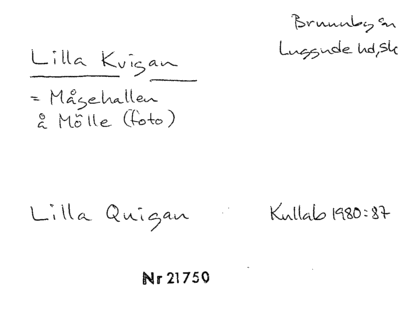 Brunnby sn
Luggude hd, Sk
Lilla Kvigan
= Mågehallen
å Mölle (foto)
Lilla Quigan
Kullab 1980:87
Nr 21750